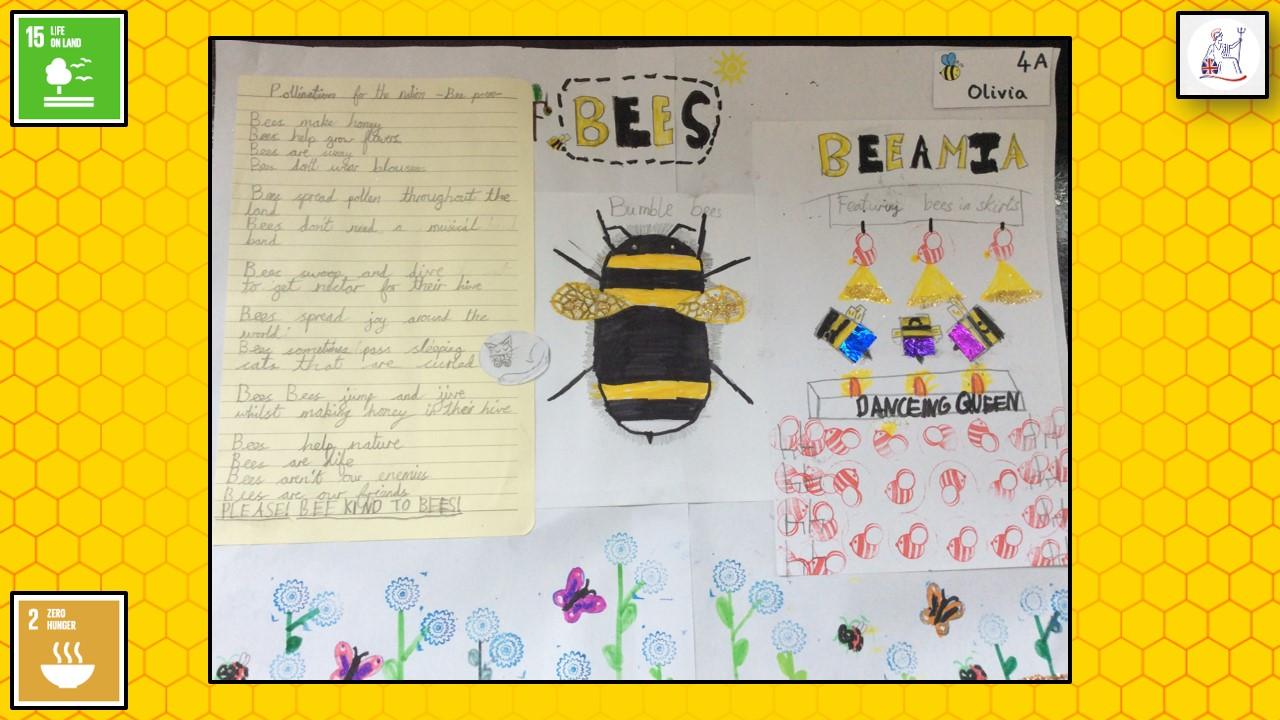 15 LIFE
ON LAND
2 ZERO
HUNGER
Pollinators for the nation - Bee poem
Bees make honey
Bees help grow flowers
Bees are
Bees don't wear blouses
Bees spread pollen throughout the
land
Bees don't need a musical
band
Bees swoop and dive
to get nectar for their hive
Bees spread joy around the
world
Bees sometimes pass sleeping
cats that are curled
Bees Bees jump and jive
whilst making honey in their hive
Bees help nature
Bees are life
Bees aren't our enemies
Bees are our friends
PLEASE! BEE KIND TO BEES!
BEES
Bumble bees
4A
Olivia
BEEAMIA
Featuring bees in skirts
DANCEING QUEEN